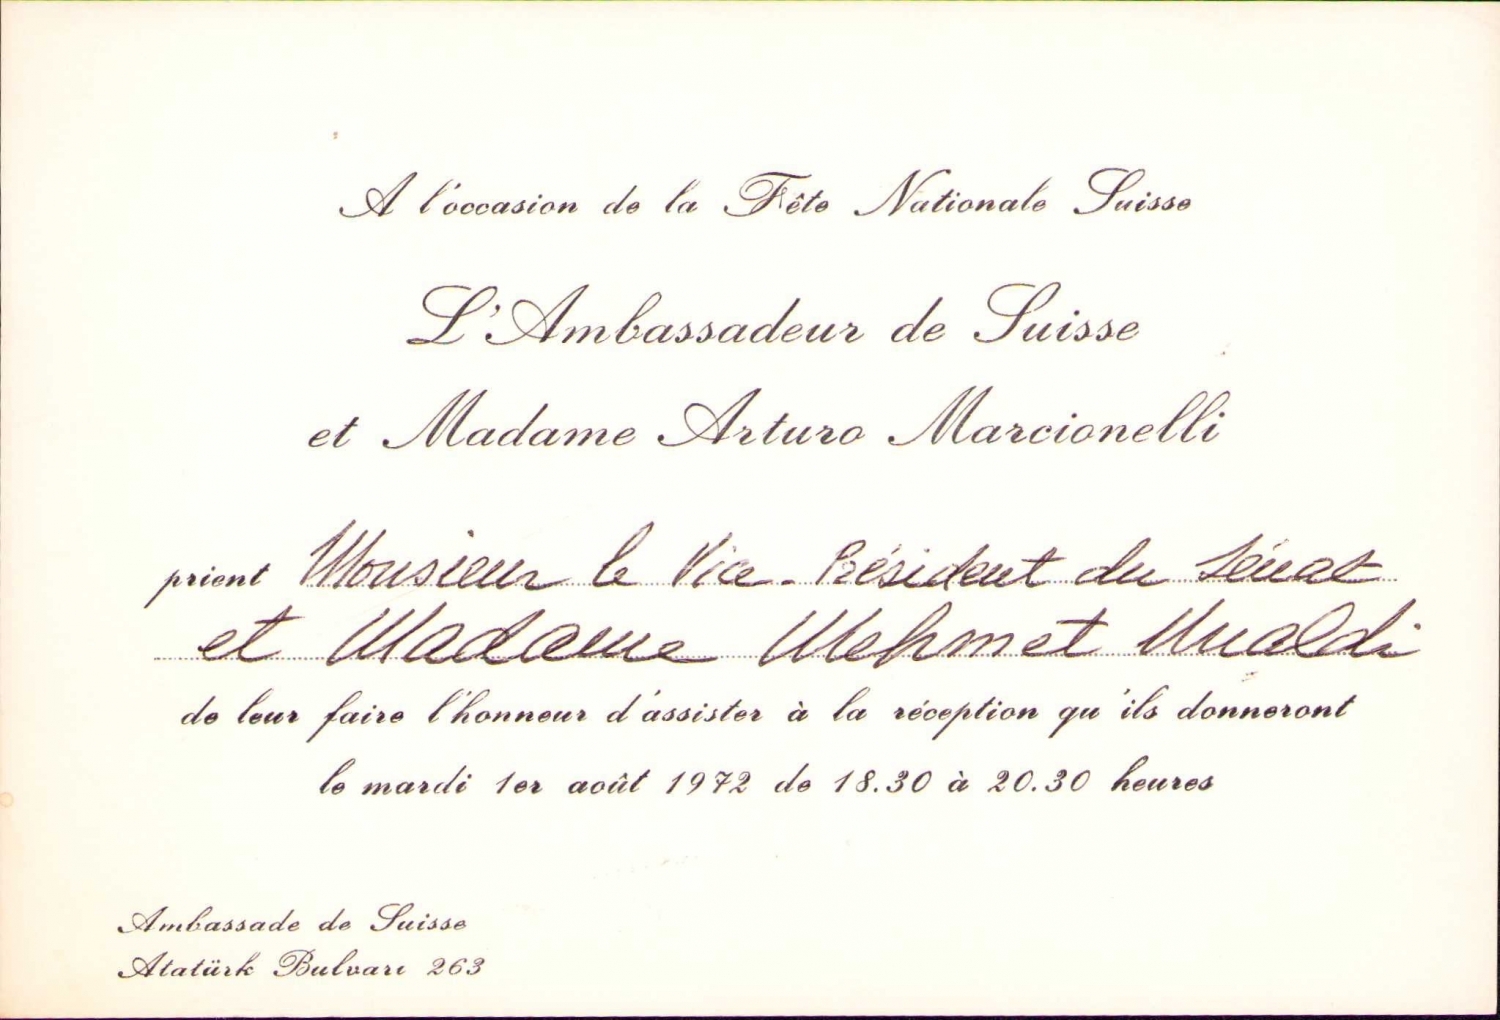 A l'occasion de la Fête Nationale Suisse
L'Ambassadeur de Suisse
et Madame Arturo Marcionelli
prient Monsieur le Vice-Président du Sénat
et Madame Mehmet Unaldi
de leur faire l'honneur d'assister à la réception qu'ils donneront
le mardi 1er août 1972 de 18.30 à 20.30 heures
Ambassade de Suisse
Atatürk Bulvarı 263